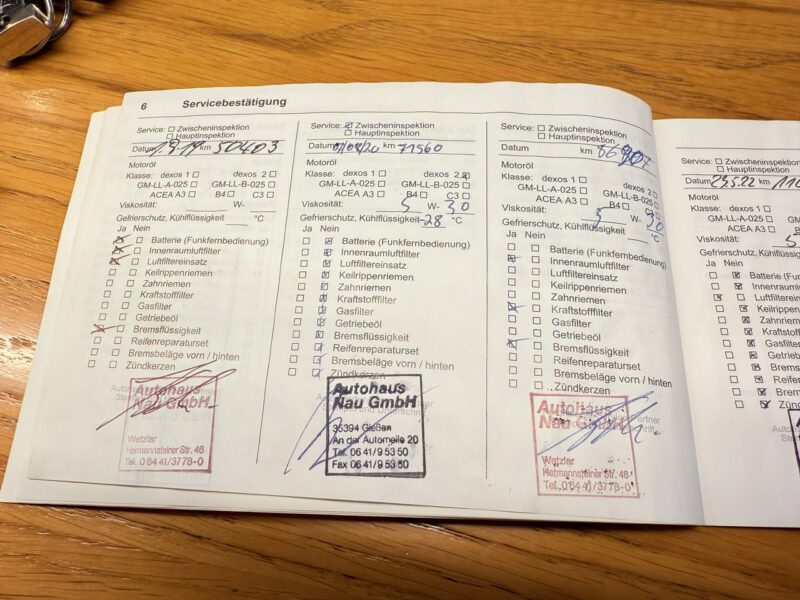 6 Servicebestätigung
Service: Zwischeninspektion
Hauptinspektion
Datum km 50403
Motoröl
Klasse: dexos 1 dexos 2
GM-LL-A-025 GM-LL-B-025
ACEA A3 B4 C3
Viskosität: W-
Gefrierschutz, Kühlflüssigkeit °C
Ja Nein
Batterie (Funkfernbedienung)
Innenraumluftfilter
Luftfiltereinsatz
Keilrippenriemen
Zahnriemen
Kraftstofffilter
Gasfilter
Getriebeöl
Bremsflüssigkeit
Reifenreparaturset
Bremsbeläge vorn / hinten
Zündkerzen
Autohaus
Nau GmbH
Wetzlar
Hermannsteiner Str. 46
Tel. 0 64 41/3778-0
Service: Zwischeninspektion
Hauptinspektion
Datum km 71560
Motoröl
Klasse: dexos 1 dexos 2
GM-LL-A-025 GM-LL-B-025
ACEA A3 B4 C3
Viskosität: 5 W- 30
Gefrierschutz, Kühlflüssigkeit -28 °C
Ja Nein
Batterie (Funkfernbedienung)
Innenraumluftfilter
Luftfiltereinsatz
Keilrippenriemen
Zahnriemen
Kraftstofffilter
Gasfilter
Getriebeöl
Bremsflüssigkeit
Reifenreparaturset
Bremsbeläge vorn / hinten
Zündkerzen
Autohaus
Nau GmbH
35394 Gießen
An der Automeile 20
Tel. 06 41/9 53 50
Fax 06 41/9 53 50
Service: Zwischeninspektion
Hauptinspektion
Datum km
Motoröl
Klasse: dexos 1 dexos 2
GM-LL-A-025 GM-LL-B-025
ACEA A3 B4 C3
Viskosität: 5 W- 30
Gefrierschutz, Kühlflüssigkeit °C
Ja Nein
Batterie (Funkfernbedienung)
Innenraumluftfilter
Luftfiltereinsatz
Keilrippenriemen
Zahnriemen
Kraftstofffilter
Gasfilter
Getriebeöl
Bremsflüssigkeit
Reifenreparaturset
Bremsbeläge vorn / hinten
Zündkerzen
Autohaus
Nau GmbH
Wetzlar
Hermannsteiner Str. 46
Tel. 0 64 41/3778-0
Service: Zwischeninspektion
Hauptinspektion
Datum 23.5.22 km
Motoröl
Klasse: dexos 1
GM-LL-A-025
ACEA A3
Viskosität: 5
Gefrierschutz, Kühlflüssigkeit
Ja Nein
Batterie
Innenraumluftfilter
Luftfiltereinsatz
Keilrippen
Zahnriemen
Kraftstoff
Gasfilter
Getriebeöl
Bremsfl
Reifen
Bremsb
Zünd